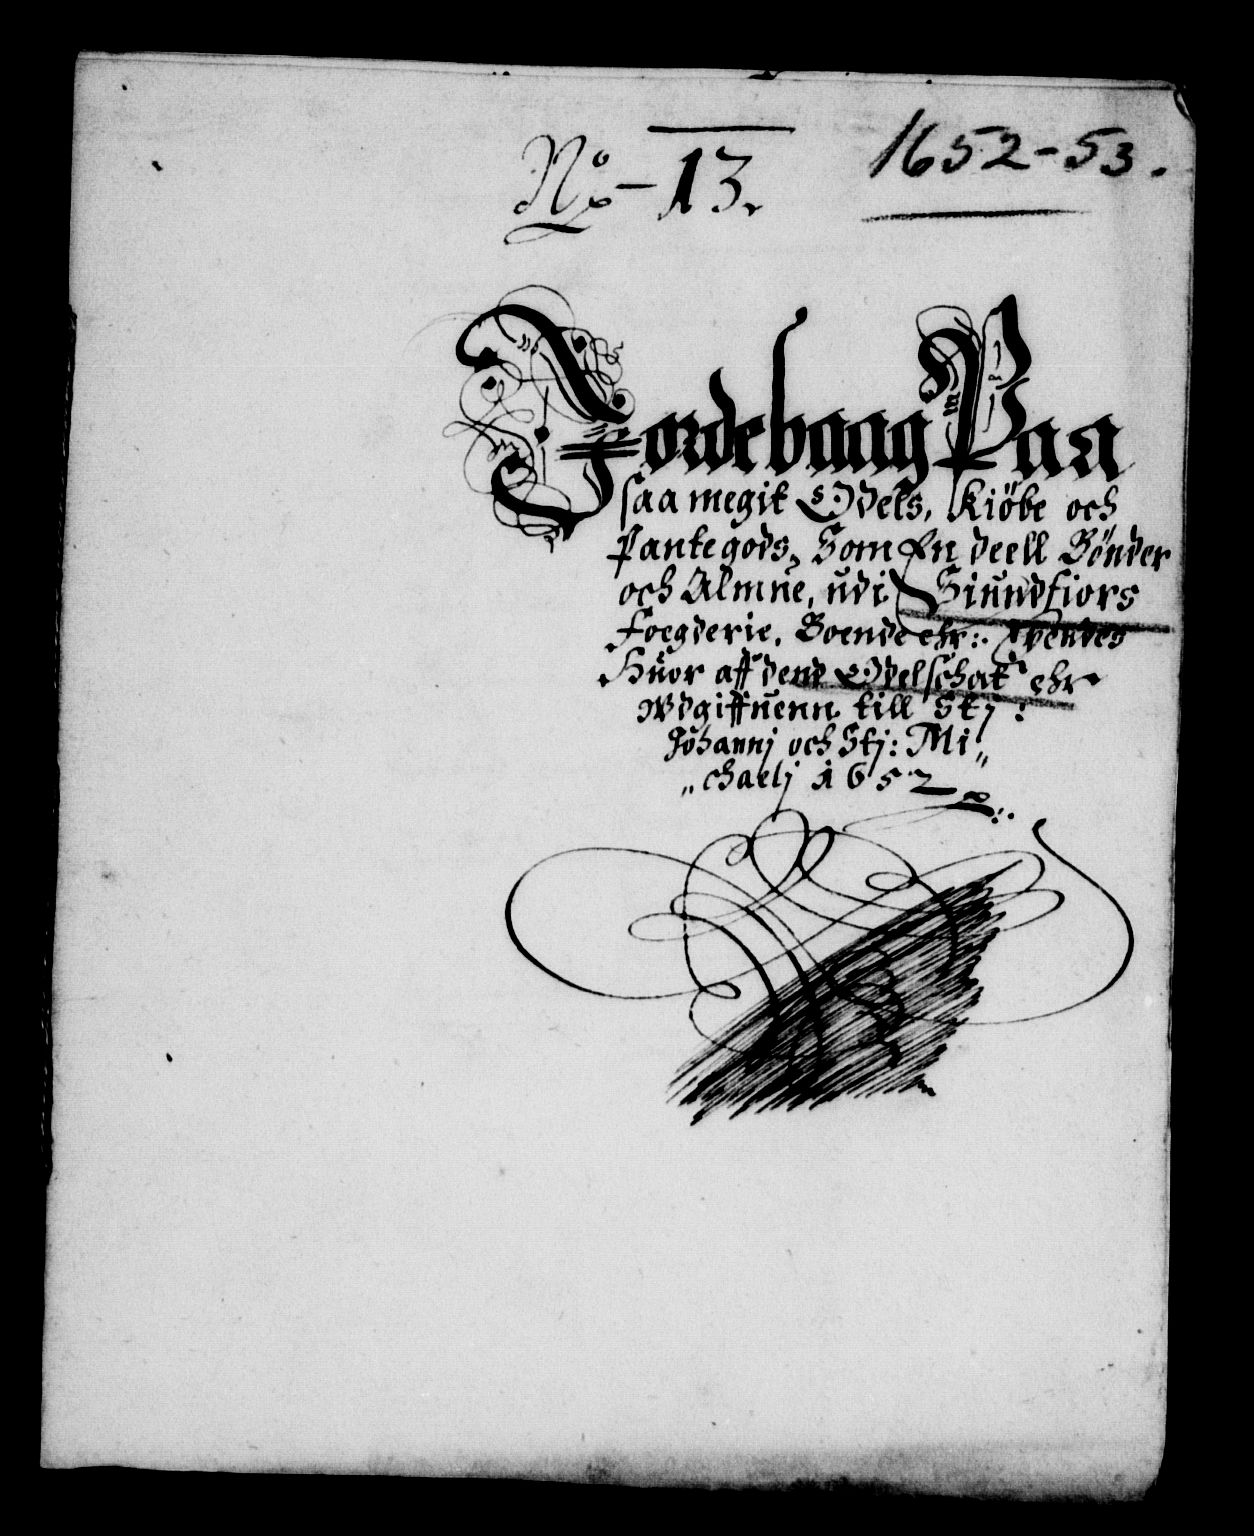 No 13.
1652-53.
Jordebaag Paa
saa megit Odels, Kiöbe och
Pantegods, Som En deell Bönder
och Almue, udi Siundfiors
Foegderie, Boende ehr:
Huor aff dend Odelschat ehr
Wdgiffuenn till Stj:
Johannj och Stj: Mi„
„chaelj 1652